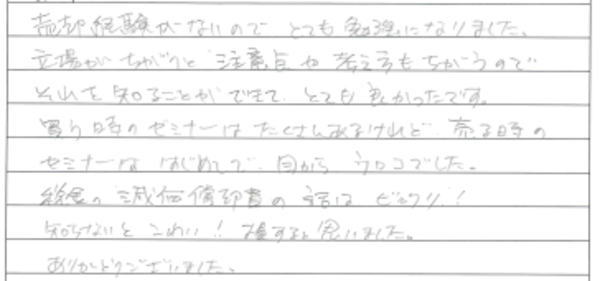 売却経験がないので とても勉強になりました。
立場がちがうと 注意点や 考え方もちがうので
それを 知ることができて、とても 良かったです。
買う時のセミナーは たくさんあるけれど、売る時の
セミナーは はじめてで、目から ウロコでした。
の 減価償却費の 話は ビックリ!!
知らないと こわい!! 損すると思いました。
ありがとうございました。